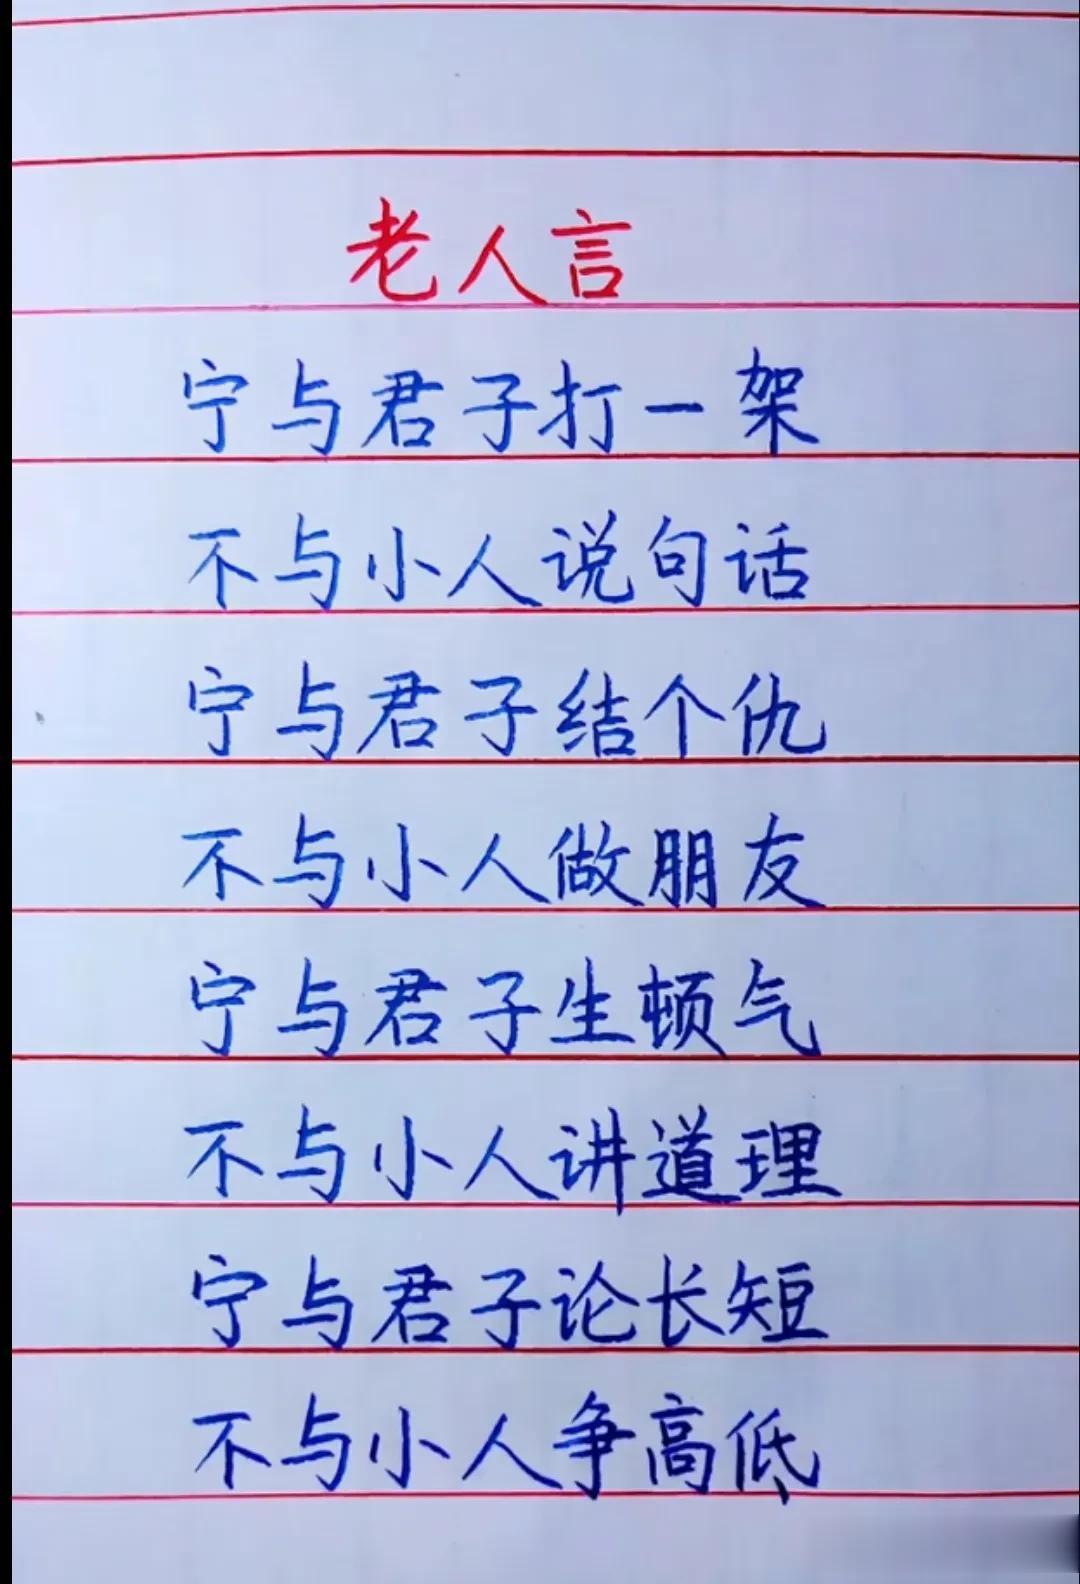 老人言
宁与君子打一架
不与小人说句话
宁与君子结个仇
不与小人做朋友
宁与君子生顿气
不与小人讲道理
宁与君子论长短
不与小人争高低